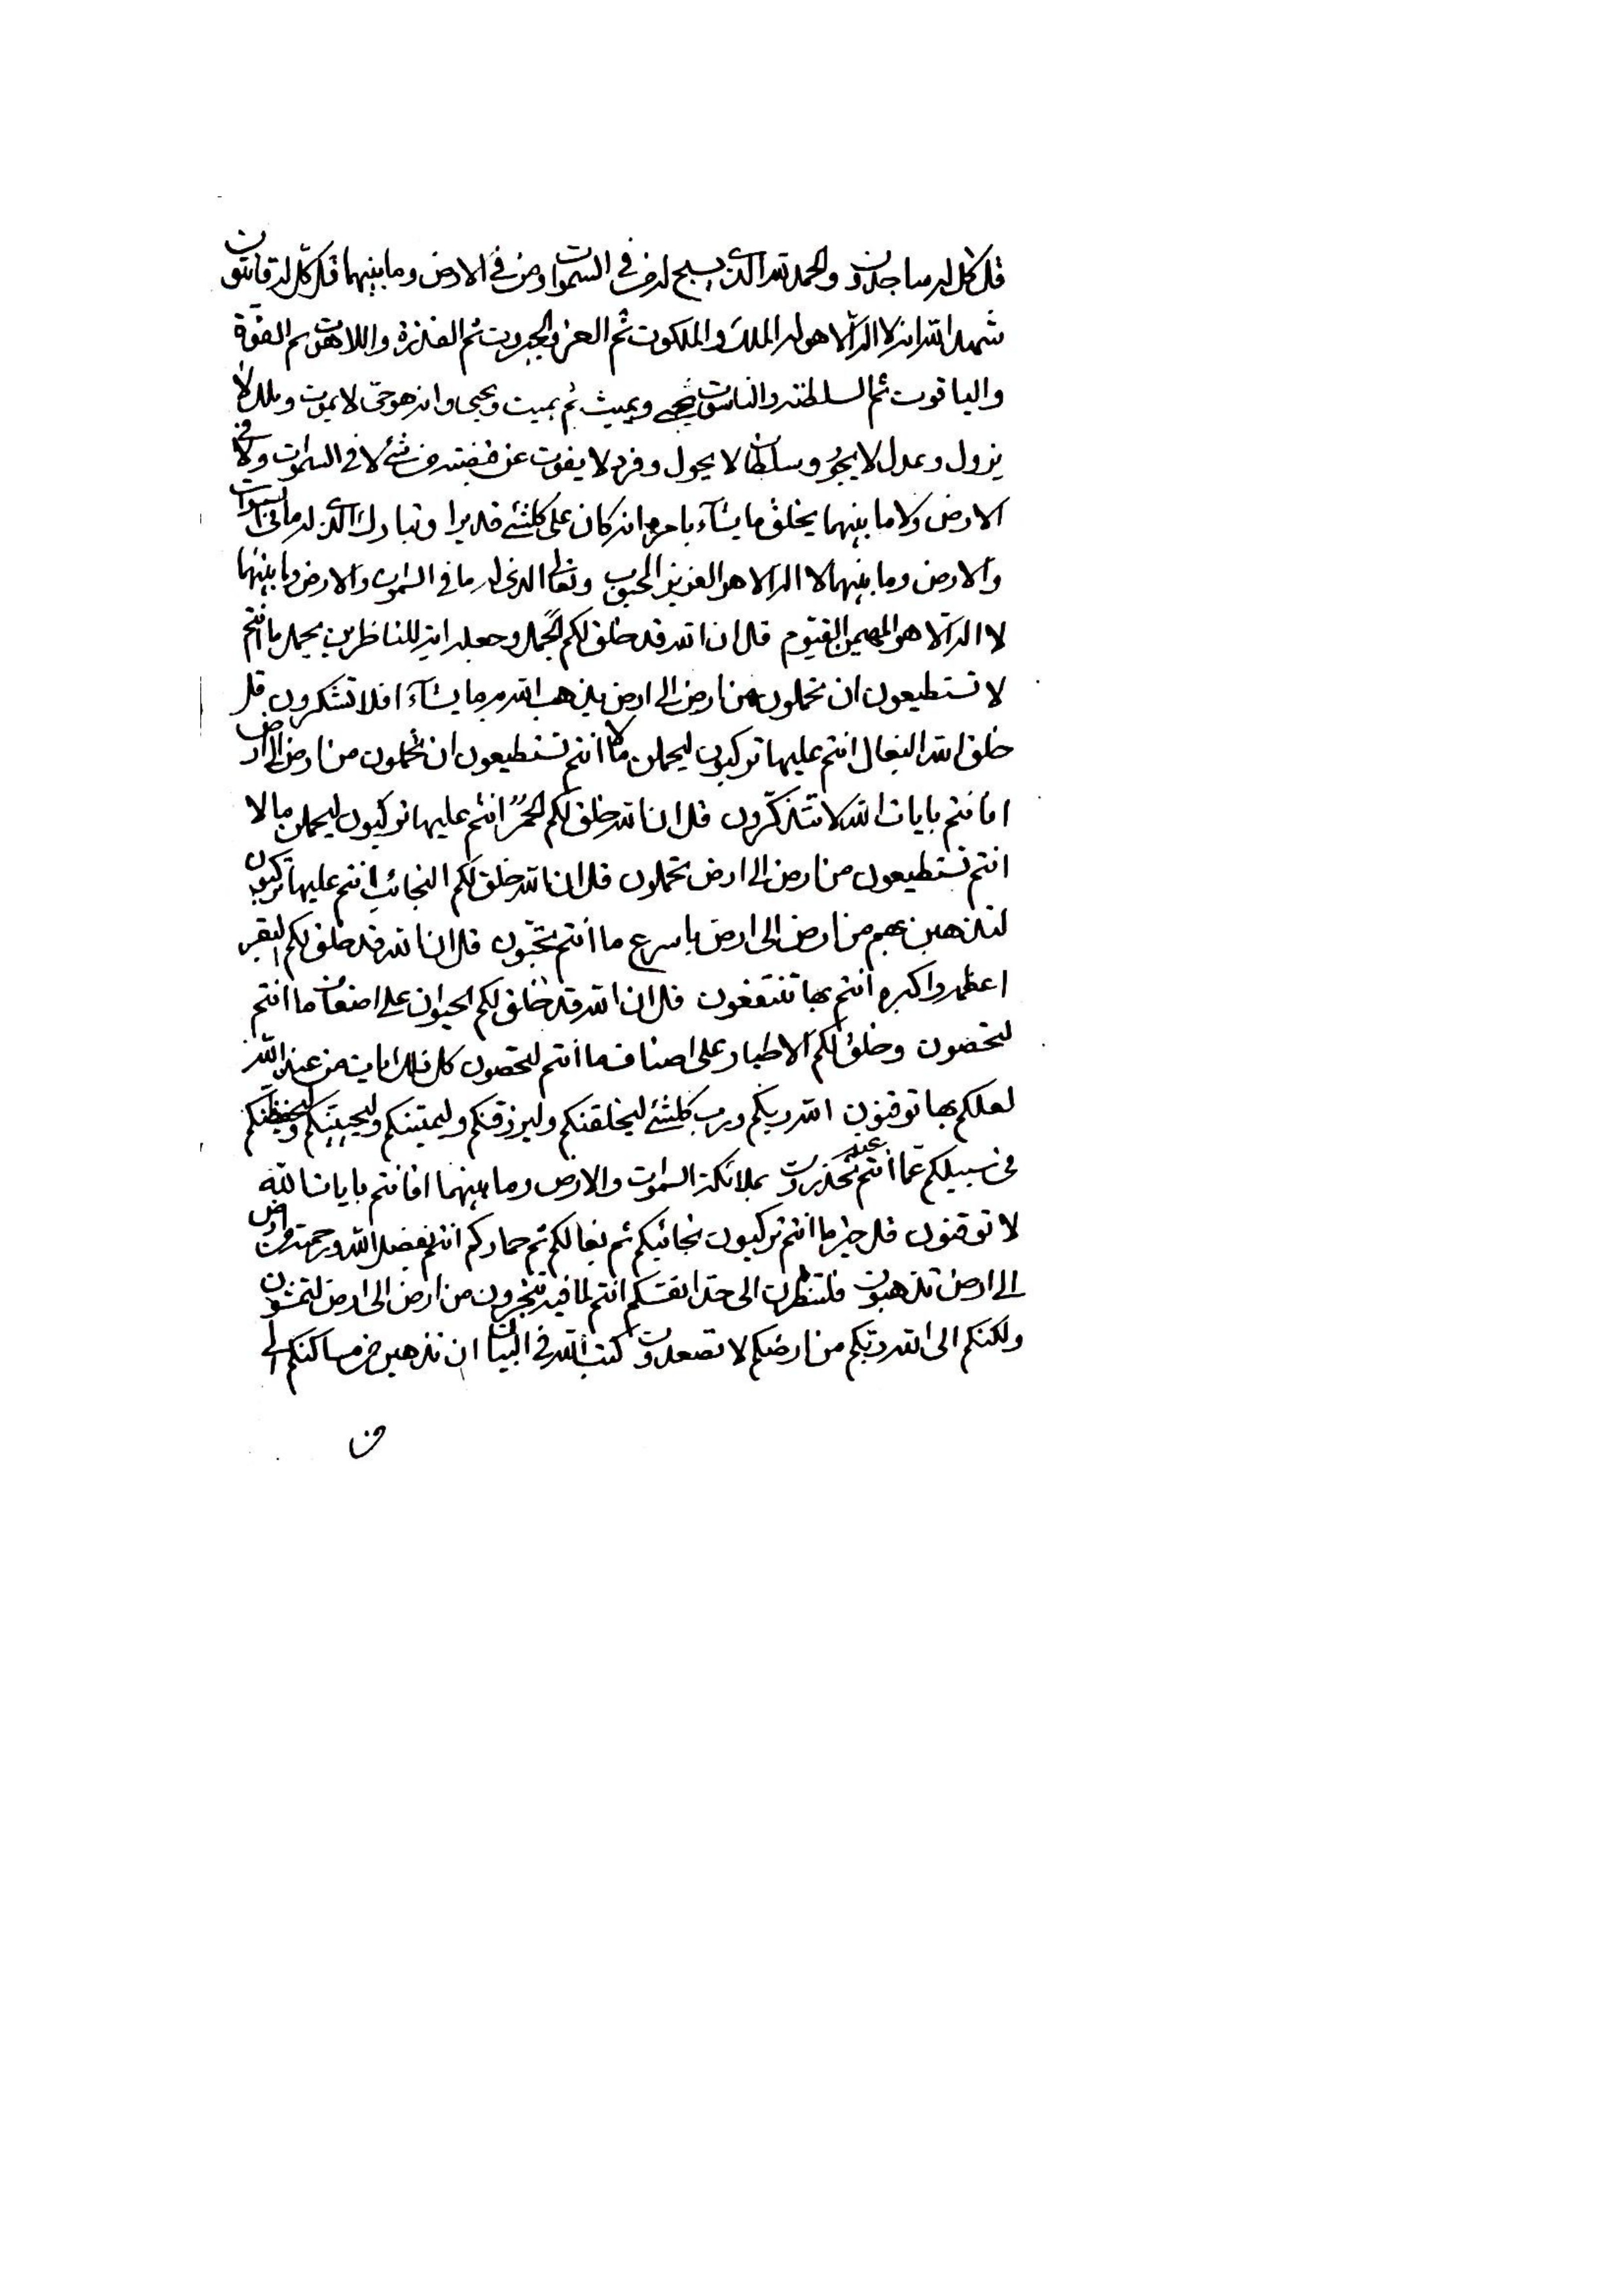 قل كل له ساجدون والحمد لله الذي يسبح له من في السموات ومن في الارض وما بينهما قل كل له قانتون
شهد الله انه لا اله الا هو له الملك والملكوت ثم العز والجبروت ثم القدرة واللاهوت ثم القوة
والياقوت ثم السلطنة والناسوت يحيي ويميت ثم يميت ويحيي وانه هو حي لا يموت وملك لا
يزول وعدل لا يجور وسلطان لا يحول وفرد لا يفوت عن قبضته من شئ لا في السموات ولا في
الارض ولا ما بينهما يخلق ما يشآء بامره انه كان على كلشئ قديرا وتبارك الذي له ما في السموات
والارض وما بينهما لا اله الا هو العزيز المحبوب وتعالى الذي له ما في السموات والارض وما بينهما
لا اله الا هو المهيمن القيوم قل ان الله قد خلق لكم الجمل وجعله اية للناظرين يحمل ما انتم
لا تستطيعون ان تحملون من ارض الى ارض يذهب الله به ما يشآء افلا تشكرون قل
خلق الله البغال انتم عليها تركبون ليحملن ما لا انتم تستطيعون ان تحملون من ارض الى ارض
افانتم بايات الله لا تتذكرون قل ان الله خلق لكم الحمر انتم عليها تركبون ليحملن ما لا
انتم تستطيعون من ارض الى ارض تحملون قل ان الله خلق لكم النجائب انتم عليها تركبون
لتذهبن بهم من ارض الى ارض باسرع ما انتم تحبون قل ان الله قد خلق لكم البقر
اعظمه واكبره انتم بها تنتفعون قل ان الله قد خلق لكم الحيوان على اصناف ما انتم
لتحصون وخلق لكم الاطيار على اصناف ما انتم لتحصون كل ذلك ايات من عند الله
لعلكم بها توقنون الله ربكم ورب كلشئ ليخلقنكم وليرزقنكم وليميتنكم وليحيينكم وليحفظنكم
في سبيلكم عما انتم عنه تحذرون بملائكة السموات والارض وما بينهما افانتم بايات الله
لا توقنون قل خير ما انتم تركبون نجائبكم ثم بغالكم ثم حماركم انتم بفضل الله ورحمته من ارض
الى ارض تذهبون فلتنظرن الى حد انفسكم انتم لما فيه تتجرون من ارض الى ارض لتمشون
ولكنكم الى الله ربكم من ارضكم لا تصعدون كتب الله في البيان ان تذهبن من مساكنكم الى